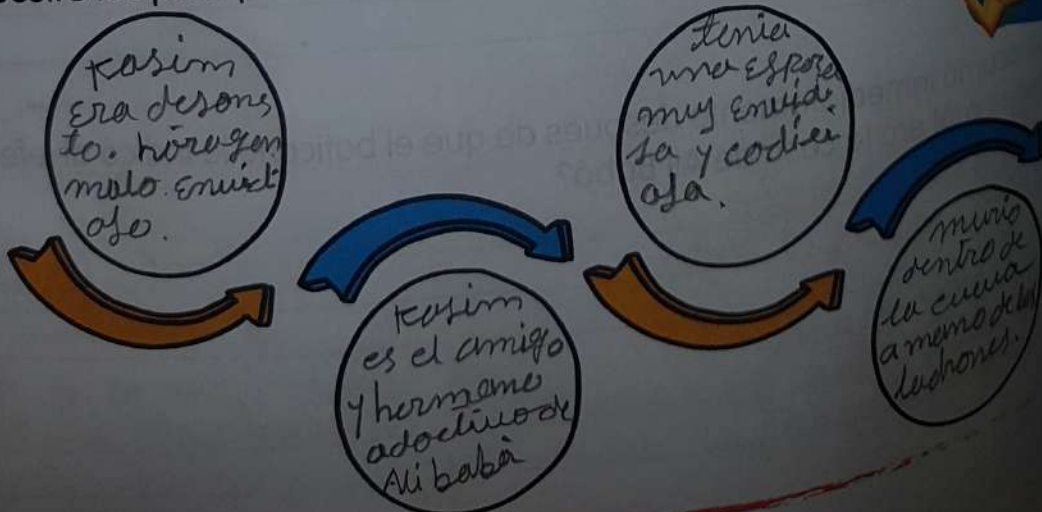 Kasim
era desons
to. hórogon
malo. envidi
oso.
Kasim
es el amigo
y hermano
adoctivo de
Ali babà
tenia
una espora
muy envidi
sa y codici
osa.
murio
dentro de
la cueva
a mano de los
ladrones.
después de que el botic